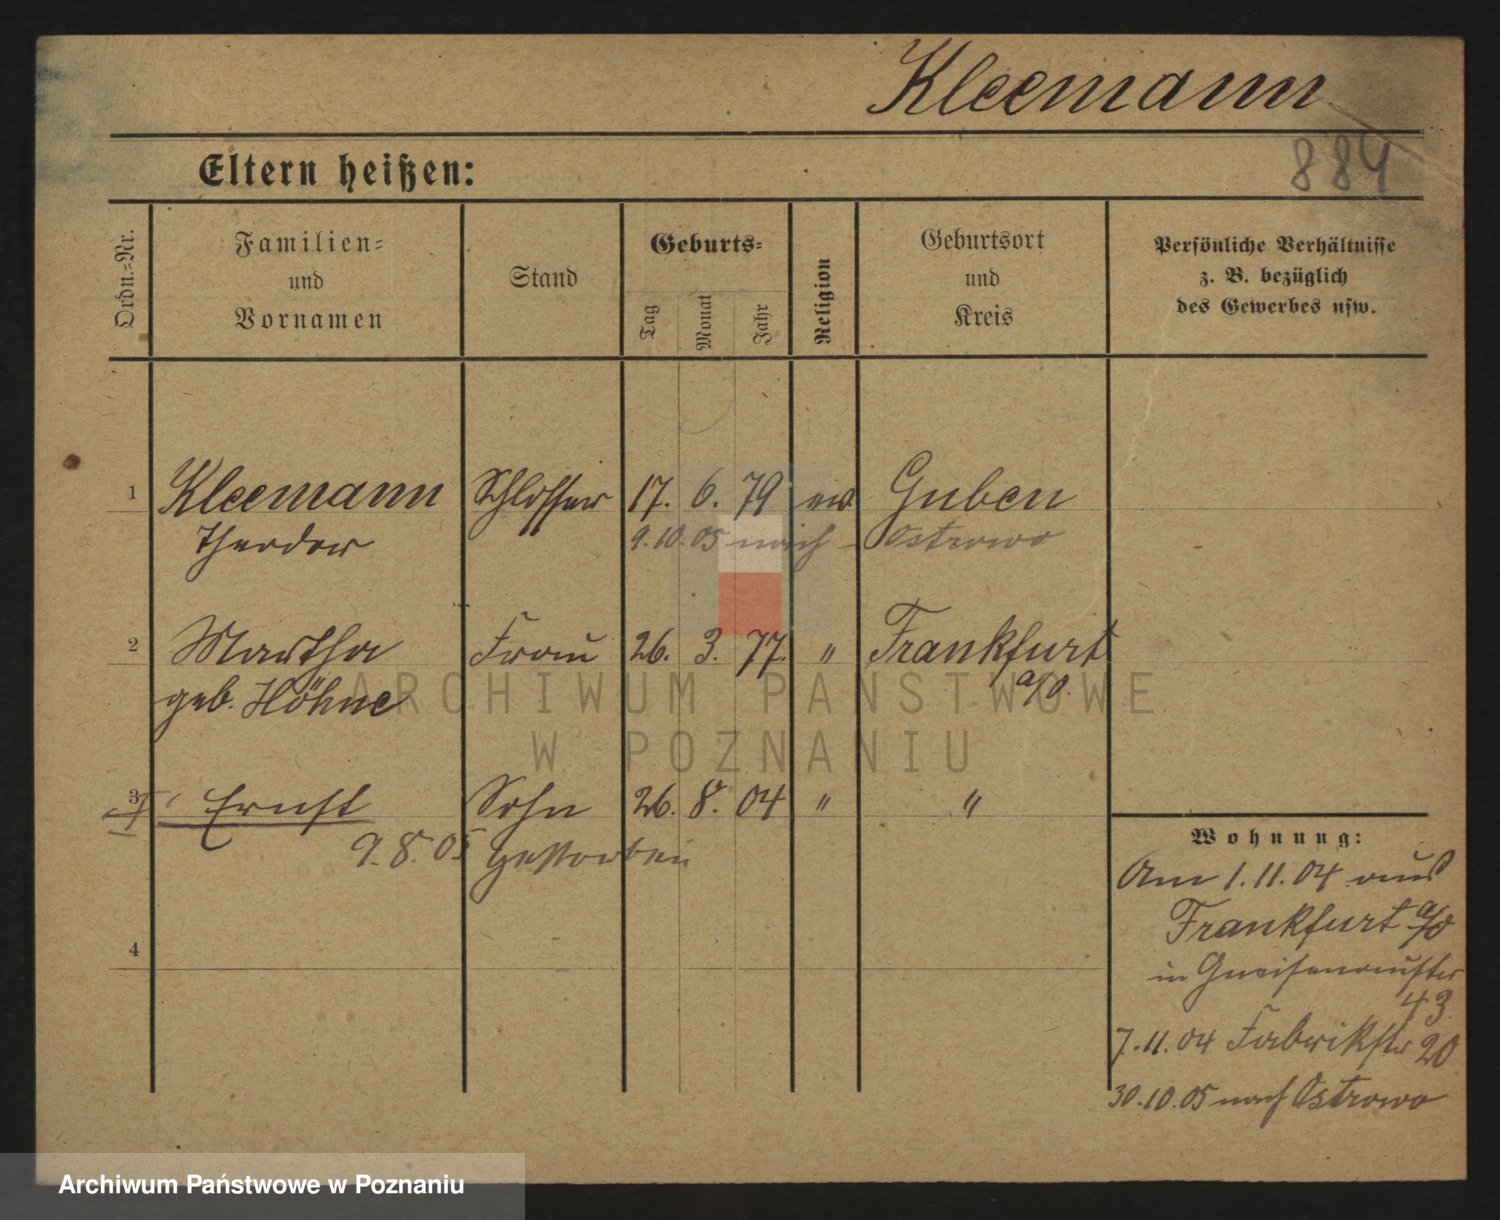 Kleemann
884
Eltern heißen:
Ordn.-Nr.
Familien-
und
Vornamen
Stand
Geburts-
Tag
Monat
Jahr
Religion
Geburtsort
und
Kreis
Persönliche Verhältnisse
z. B. bezüglich
des Gewerbes usw.
1 Kleemann Schlosser 17. 6. 79 ev. Guben
Theodor 9.10.05 nach Ostrowo
2 Martha Frau 26. 3. 77. " Frankfurt
geb. Höhne a/O.
3 Ernst Sohn 26. 8. 04 " "
9.8.05 gestorben
4
Wohnung:
Am 1.11.04 aus
Frankfurt a/O
in Gneisenaustr
43
7.11.04 Fabrikstr 20
30.10.05 nach Ostrowo
ARCHIWUM PAŃSTWOWE
W POZNANIU
Archiwum Państwowe w Poznaniu